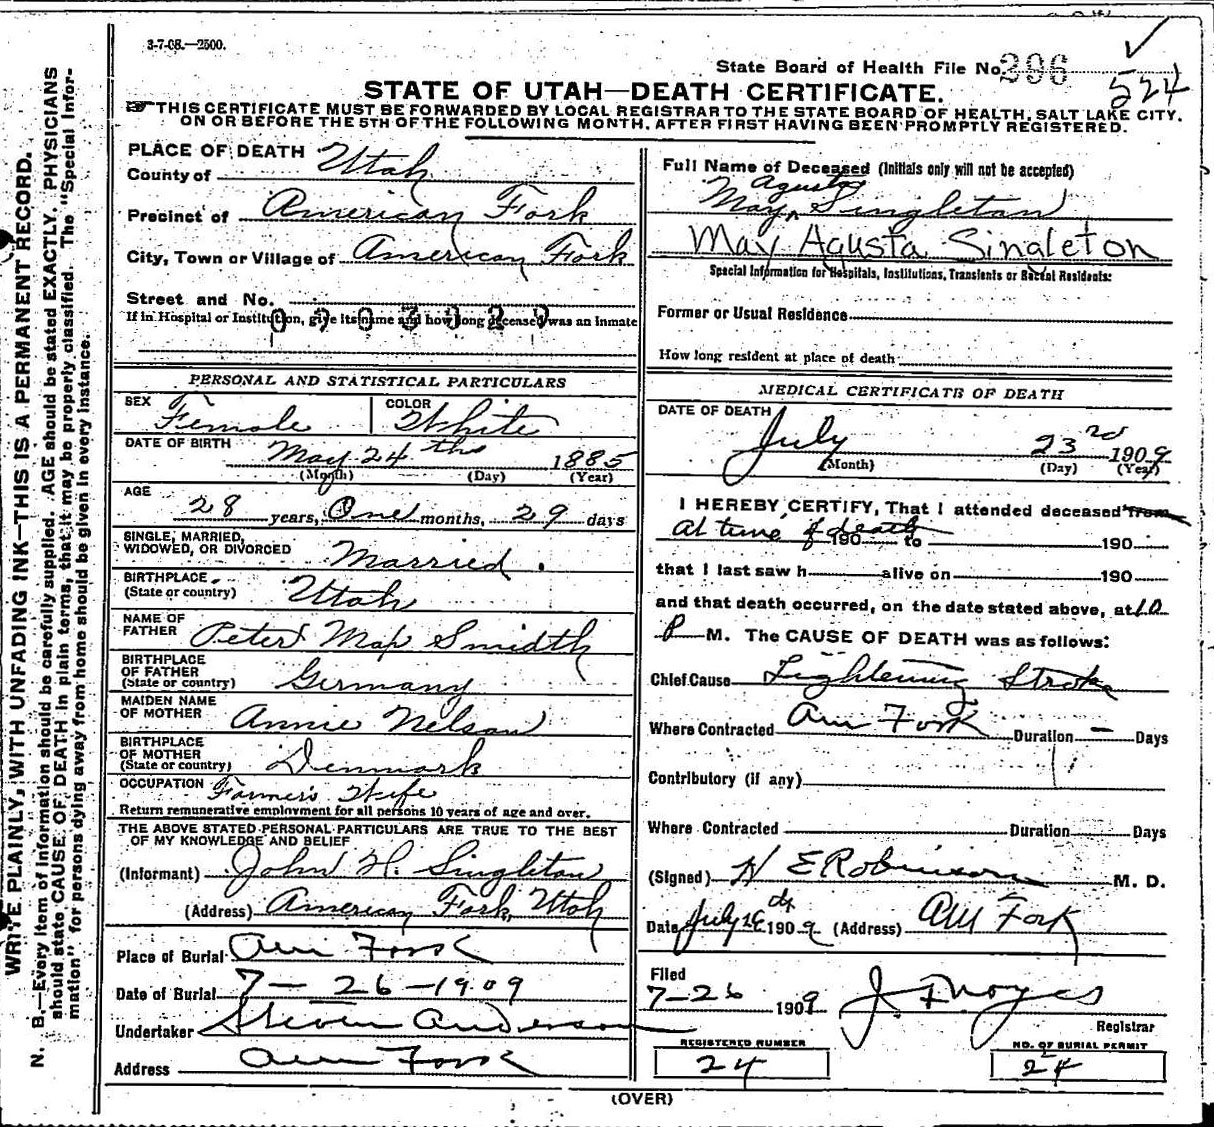 3-7-08.—2500.
State Board of Health File No. 396
524
STATE OF UTAH—DEATH CERTIFICATE.
☞ THIS CERTIFICATE MUST BE FORWARDED BY LOCAL REGISTRAR TO THE STATE BOARD OF HEALTH, SALT LAKE CITY,
ON OR BEFORE THE 5TH OF THE FOLLOWING MONTH, AFTER FIRST HAVING BEEN PROMPTLY REGISTERED.
WRITE PLAINLY, WITH UNFADING INK—THIS IS A PERMANENT RECORD.
N. B.—Every item of information should be carefully supplied. AGE should be stated EXACTLY. PHYSICIANS
should state CAUSE OF DEATH in plain terms, that it may be properly classified. The "Special Infor-
mation" for persons dying away from home should be given in every instance.
PLACE OF DEATH
County of Utah
Precinct of American Fork
City, Town or Village of American Fork
Street and No.
If in Hospital or Institution, give its name and how long deceased was an inmate
PERSONAL AND STATISTICAL PARTICULARS
SEX Female COLOR White
DATE OF BIRTH May 24 ths 1885
(Month) (Day) (Year)
AGE
28 years, One months, 29 days
SINGLE, MARRIED,
WIDOWED, OR DIVORCED Married.
BIRTHPLACE
(State or country) Utah
NAME OF
FATHER Peter Map Smidth
BIRTHPLACE
OF FATHER
(State or country) Germany
MAIDEN NAME
OF MOTHER Annie Nelson
BIRTHPLACE
OF MOTHER
(State or country) Denmark
OCCUPATION Farmer's Wife
Return remunerative employment for all persons 10 years of age and over.
THE ABOVE STATED PERSONAL PARTICULARS ARE TRUE TO THE BEST
OF MY KNOWLEDGE AND BELIEF
(Informant) John H. Singleton
(Address) American Fork, Utah
Place of Burial Am Fork
Date of Burial 7-26-1909
Undertaker Steven Anderson
Address Am Fork
Full Name of Deceased (Initials only will not be accepted)
Agusta
May Singleton
May Agusta Singleton
Special Information for Hospitals, Institutions, Transients or Recent Residents:
Former or Usual Residence
How long resident at place of death
MEDICAL CERTIFICATE OF DEATH
DATE OF DEATH
July 23rd 1909
(Month) (Day) (Year)
I HEREBY CERTIFY, That I attended deceased from
At time of death 190 to 190
that I last saw h alive on 190
and that death occurred, on the date stated above, at 10
P M. The CAUSE OF DEATH was as follows:
Chief Cause Lightening Stroke
Where Contracted Am Fork Duration — Days
Contributory (if any)
Where Contracted Duration Days
(Signed) H E Robinson M. D.
Date July 26 1909 (Address) AM Fork
Filed
7-26 1909 J. F Noyes
Registrar
REGISTERED NUMBER
24
NO. OF BURIAL PERMIT
24
(OVER)